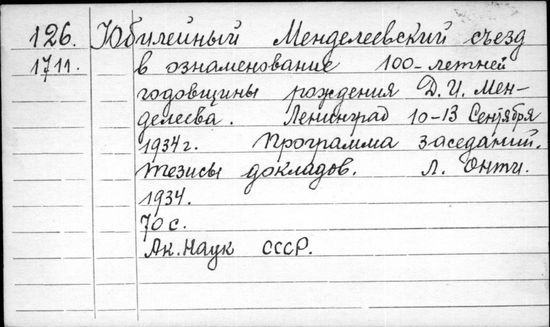 126. Юбилейный Менделеевский съезд
1711. в ознаменование 100-летней
годовщины рождения Д.И. Мен-
делеева. Ленинград 10-13 Сентября
1934 г. Программа заседаний.
тезисы докладов. Л. Онти.
1934.
70 с.
Ак. Наук СССР.